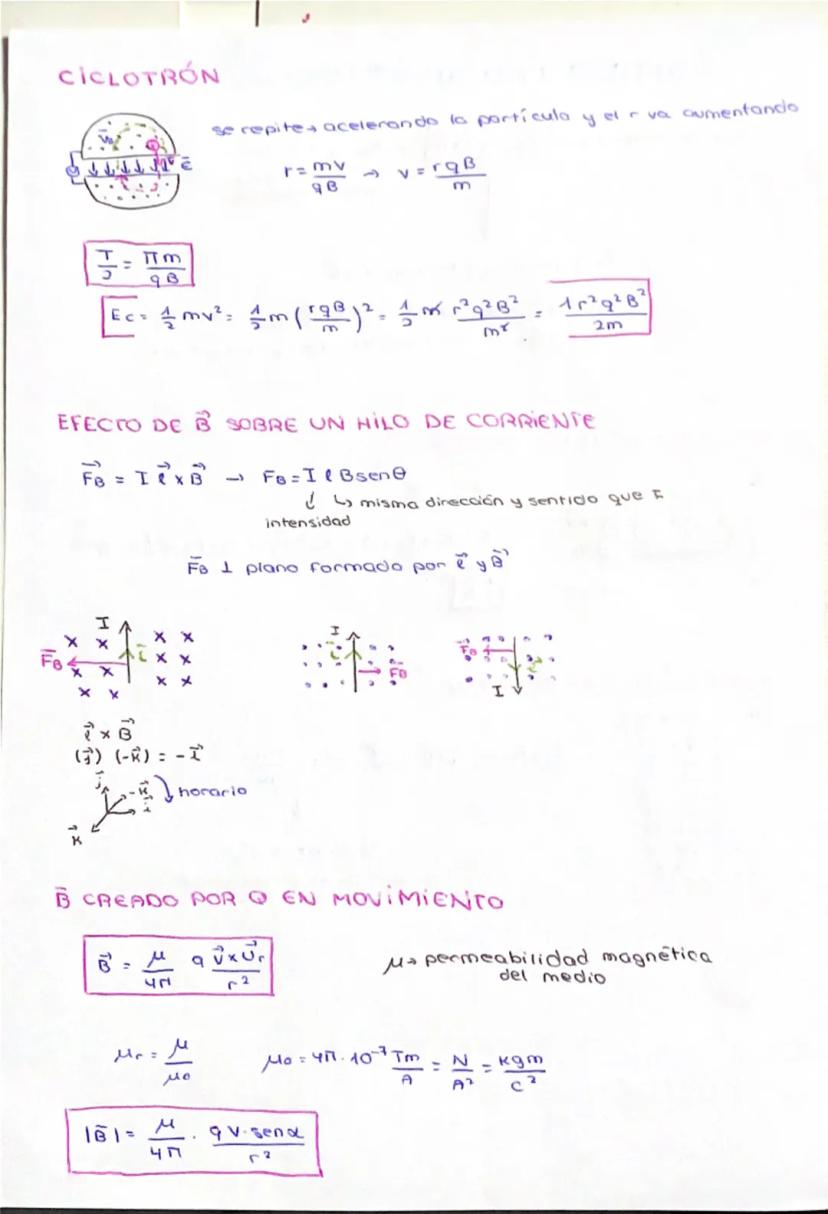 CICLOTRÓN
se repite → acelerando la partícula y el r va aumentando
r = mv/qB → v = rqB/m
E⃗
T/2 = πm/qB
Ec = 1/2 mv² = 1/2 m (rqB/m)² = 1/2 m r²q²B²/m² = 1r²q²B²/2m
EFECTO DE B⃗ SOBRE UN HILO DE CORRIENTE
F⃗B = I ℓ⃗ x B⃗ → FB = I ℓ B sen θ
↓ ↳ misma dirección y sentido que
intensidad
F⃗B ⊥ plano formado por ℓ⃗ y B⃗
I I
F⃗B F⃗B F⃗B
I
ℓ⃗ x B⃗
(j⃗) (-k⃗) = -i⃗
j⃗ -k⃗ i⃗ horario
k⃗
B⃗ CREADO POR Q EN MOVIMIENTO
B⃗ = μ/4π q v⃗ x u⃗r/r² μ → permeabilidad magnética
del medio
μr = μ/μ0 μ0 = 4π · 10⁻⁷ Tm/A = N/A² = kgm/C²
|B⃗| = μ/4π · q v · sen α/r²